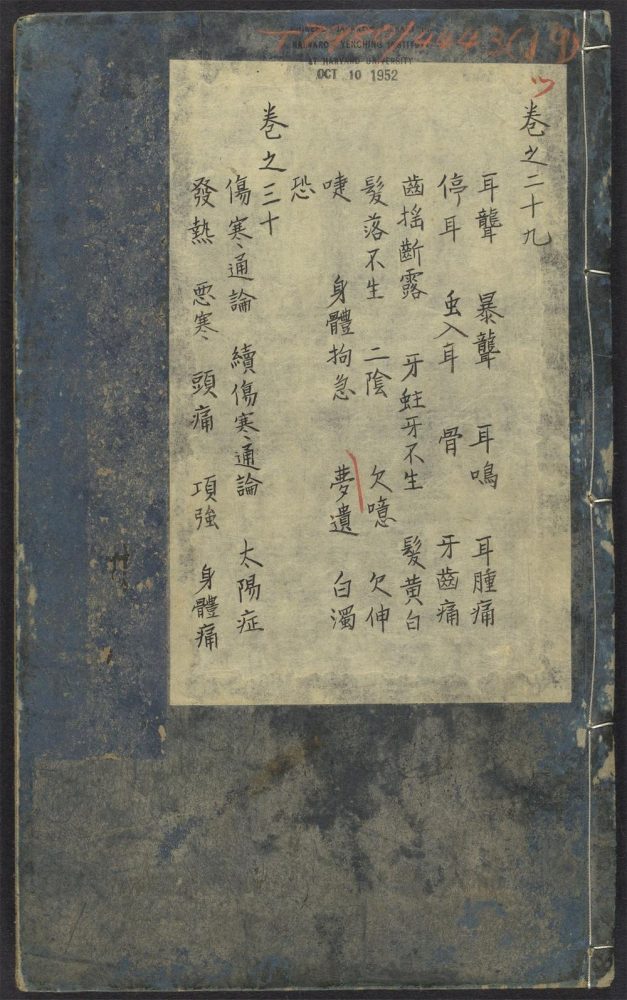 OCT 10 1952
卷之二十九
耳聾 暴聾 耳鳴 耳腫痛
停耳 虫入耳 骨 牙齒痛
齒揺斷露 牙蛀牙不生 髮黄白
髮落不生 二陰 欠噫 欠伸
嚏 身體拘急 夢遺 白濁
恐
卷之三十
傷寒通論 續傷寒通論 太陽症
發熱 悪寒 頭痛 項強 身體痛